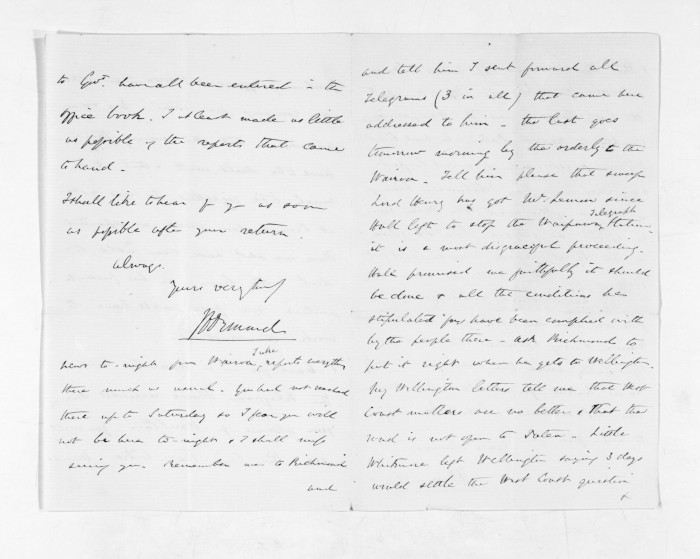 to Govt. have all been entered in the
office book. I at least made as little
as possible of the reports that came
to hand.
I shall like to hear fr you as soon
as possible after your return.
always
Yours very truly
JDOrmond
news to-night from Wairoa, Luke reports everything
there much as usual. You had not reached
there up to Saturday so I fear you will
not be here to-night & I shall miss
seeing you. Remember me to Richmond
and
and tell him I sent forward all
Telegrams (3 in all) that came here
addressed to him - the last goes
tomorrow morning by the orderly to the
Wairoa. Tell him please that
Lord Henry has got Mr. Lemon since
Hall left to stop the Waipawa Telegraph Station
it is a most disgraceful proceeding.
Hall promised me faithfully it should
be done & all the conditions he
stipulated for have been complied with
by the people there - ask Richmond to
put it right when he gets to Wellington.
My Wellington letters tell me that West
Coast matters are no better & that the
road is not open to Patea - Little
Whitmore left Wellington saying 3 days
would settle the West Coast question
&